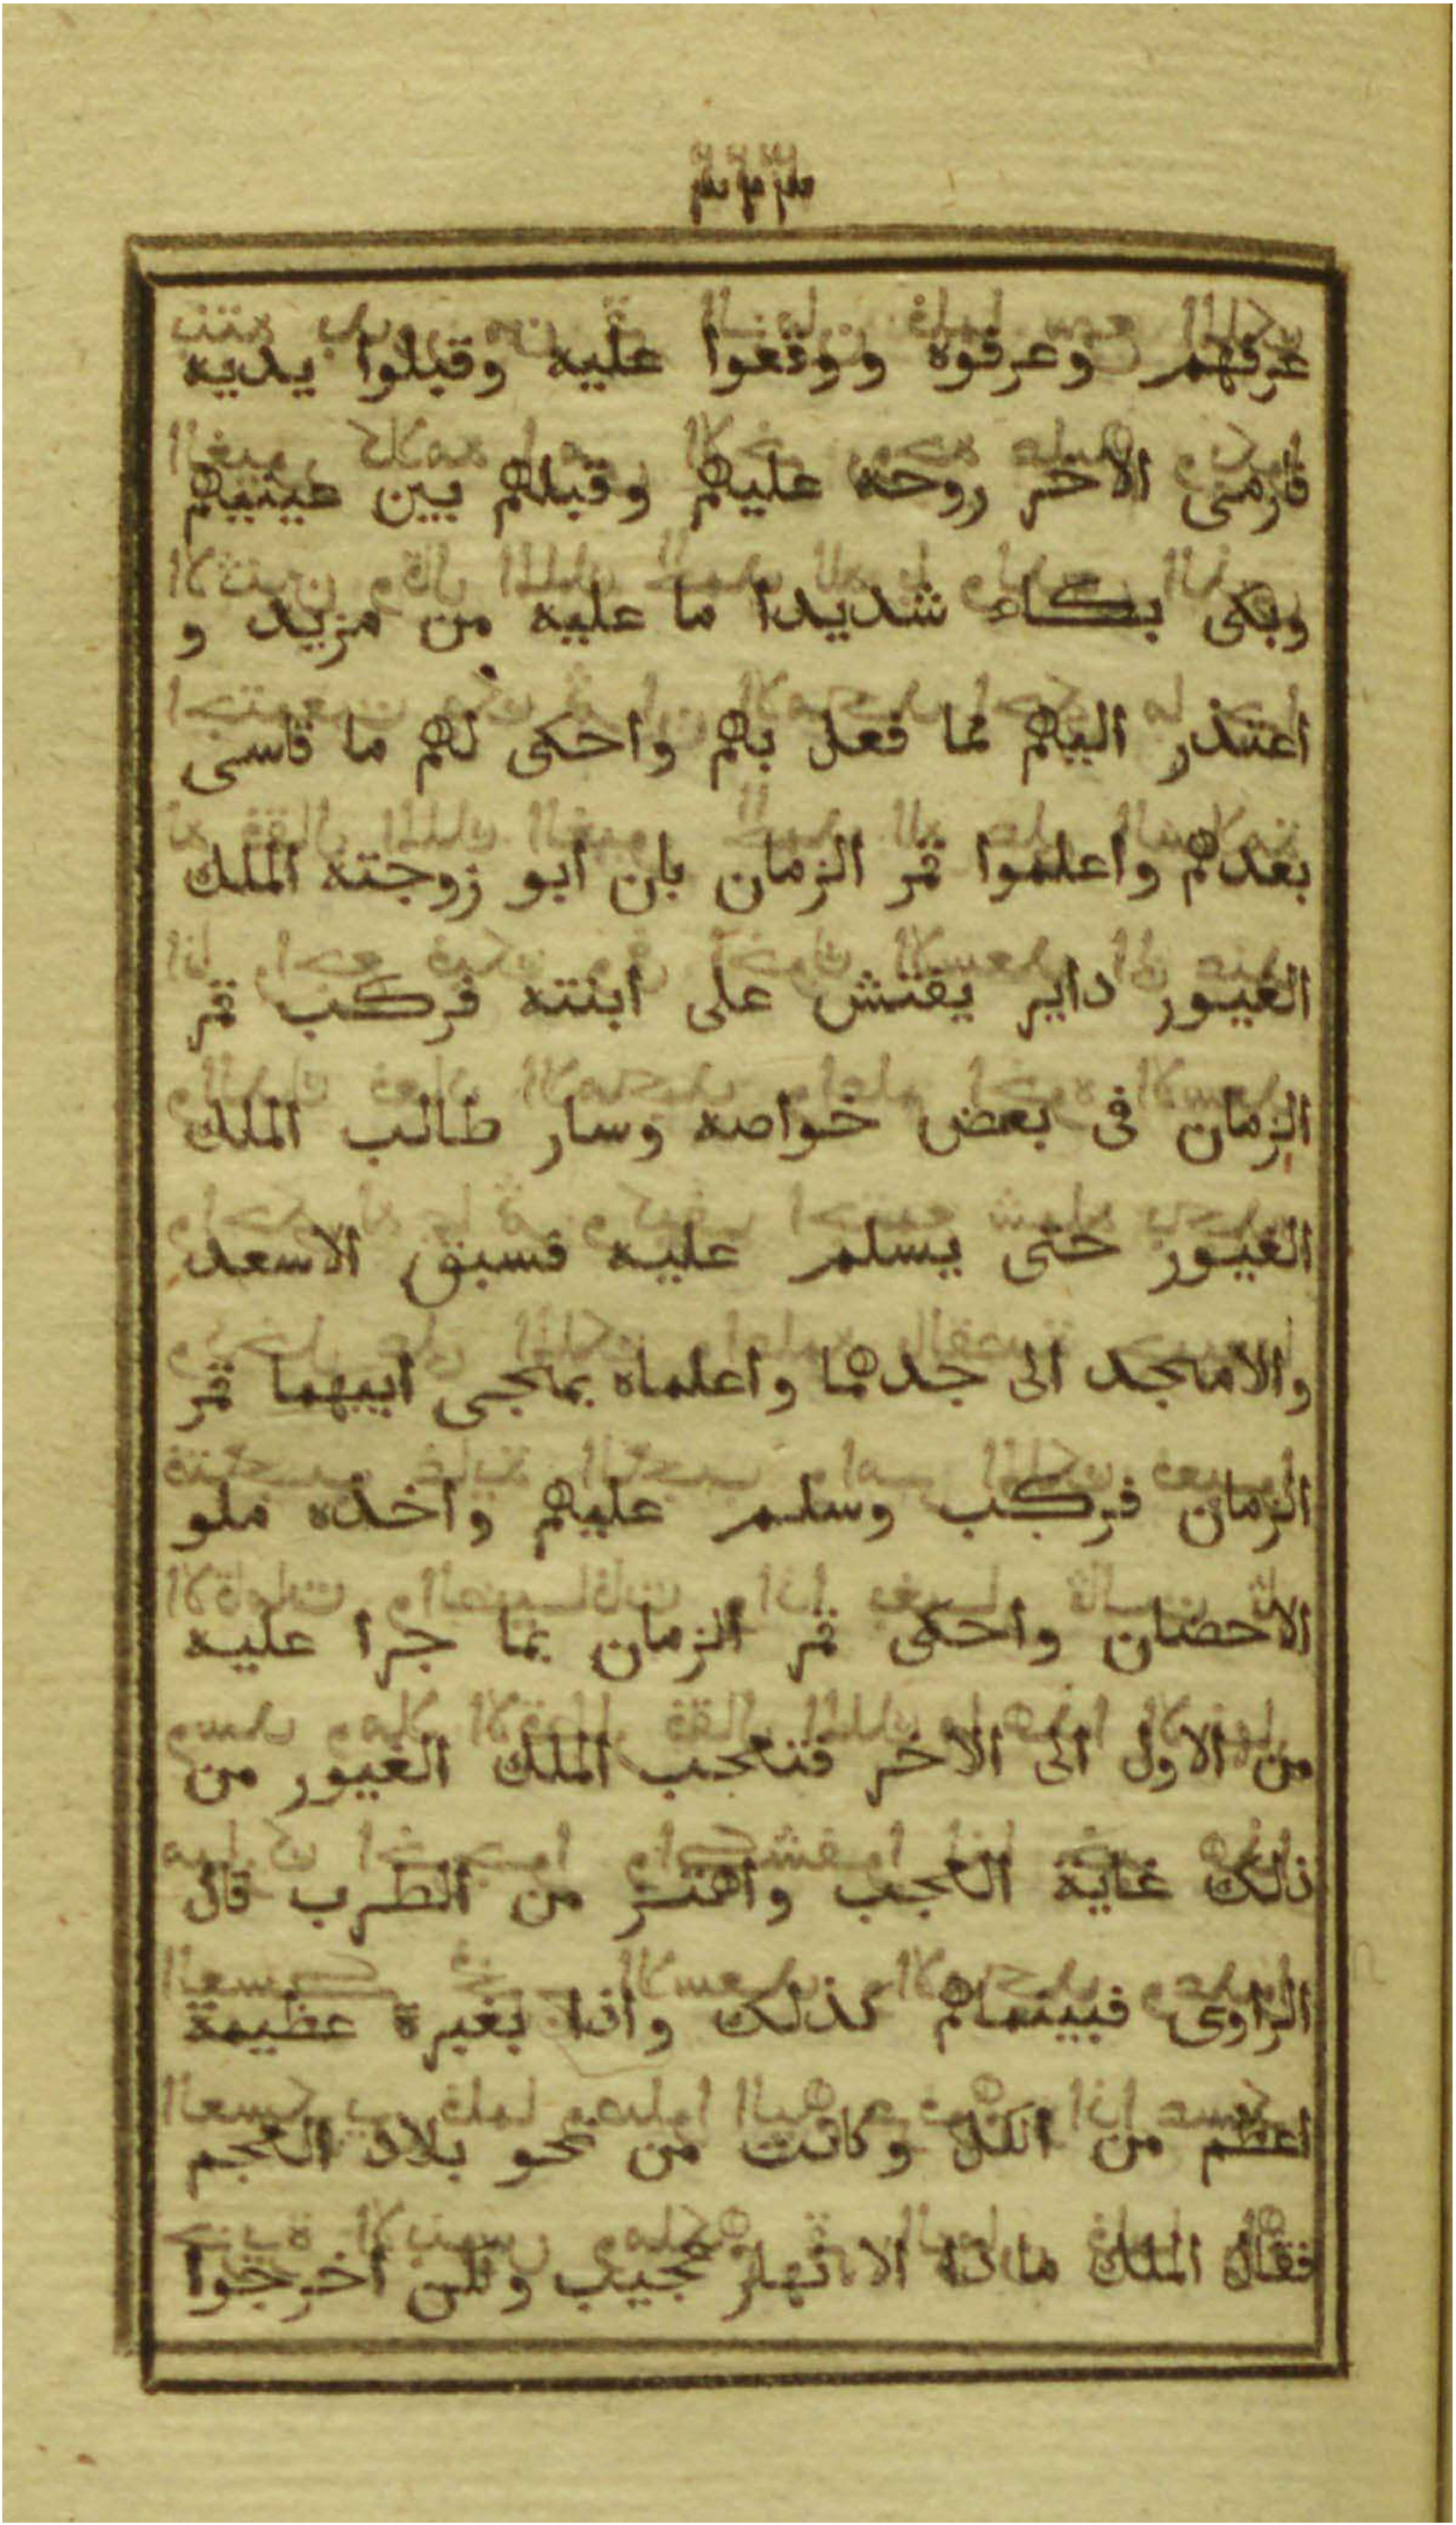 ٣٢٣
عرفهم وعرفوه ووقعوا عليه وقبلوا يديه
فارمى الاخر روحه عليهم وقبلهم بين عينيهم
وبكى بكاء شديدا ما عليه من مزيد و
اعتذر اليهم مما فعل بهم واحكى لهم ما قاسى
بعدهم واعلموا قمر الزمان بان ابو زوجته الملك
الغيور داير يفتش على ابنته فركب قمر
الزمان فى بعض خواصه وسار طالب الملك
الغيور حتى يسلم عليه فسبق الاسعد
والامجد الى جدهما واعلماه بمجى ابيهما قمر
الزمان فركب وسلم عليهم واخذه ملو
الاحضان واحكى قمر الزمان بما جرا عليه
من الاول الى الاخر فتعجب الملك الغيور من
ذلك غاية العجب واهتز من الطرب قال
الراوى فبينماهم كذلك واذا بغبرة عظيمة
اعظم من الكل وكانت من نحو بلاد العجم
فقال الملك ما ذا الا نهار عجيب ولكن اخرجوا